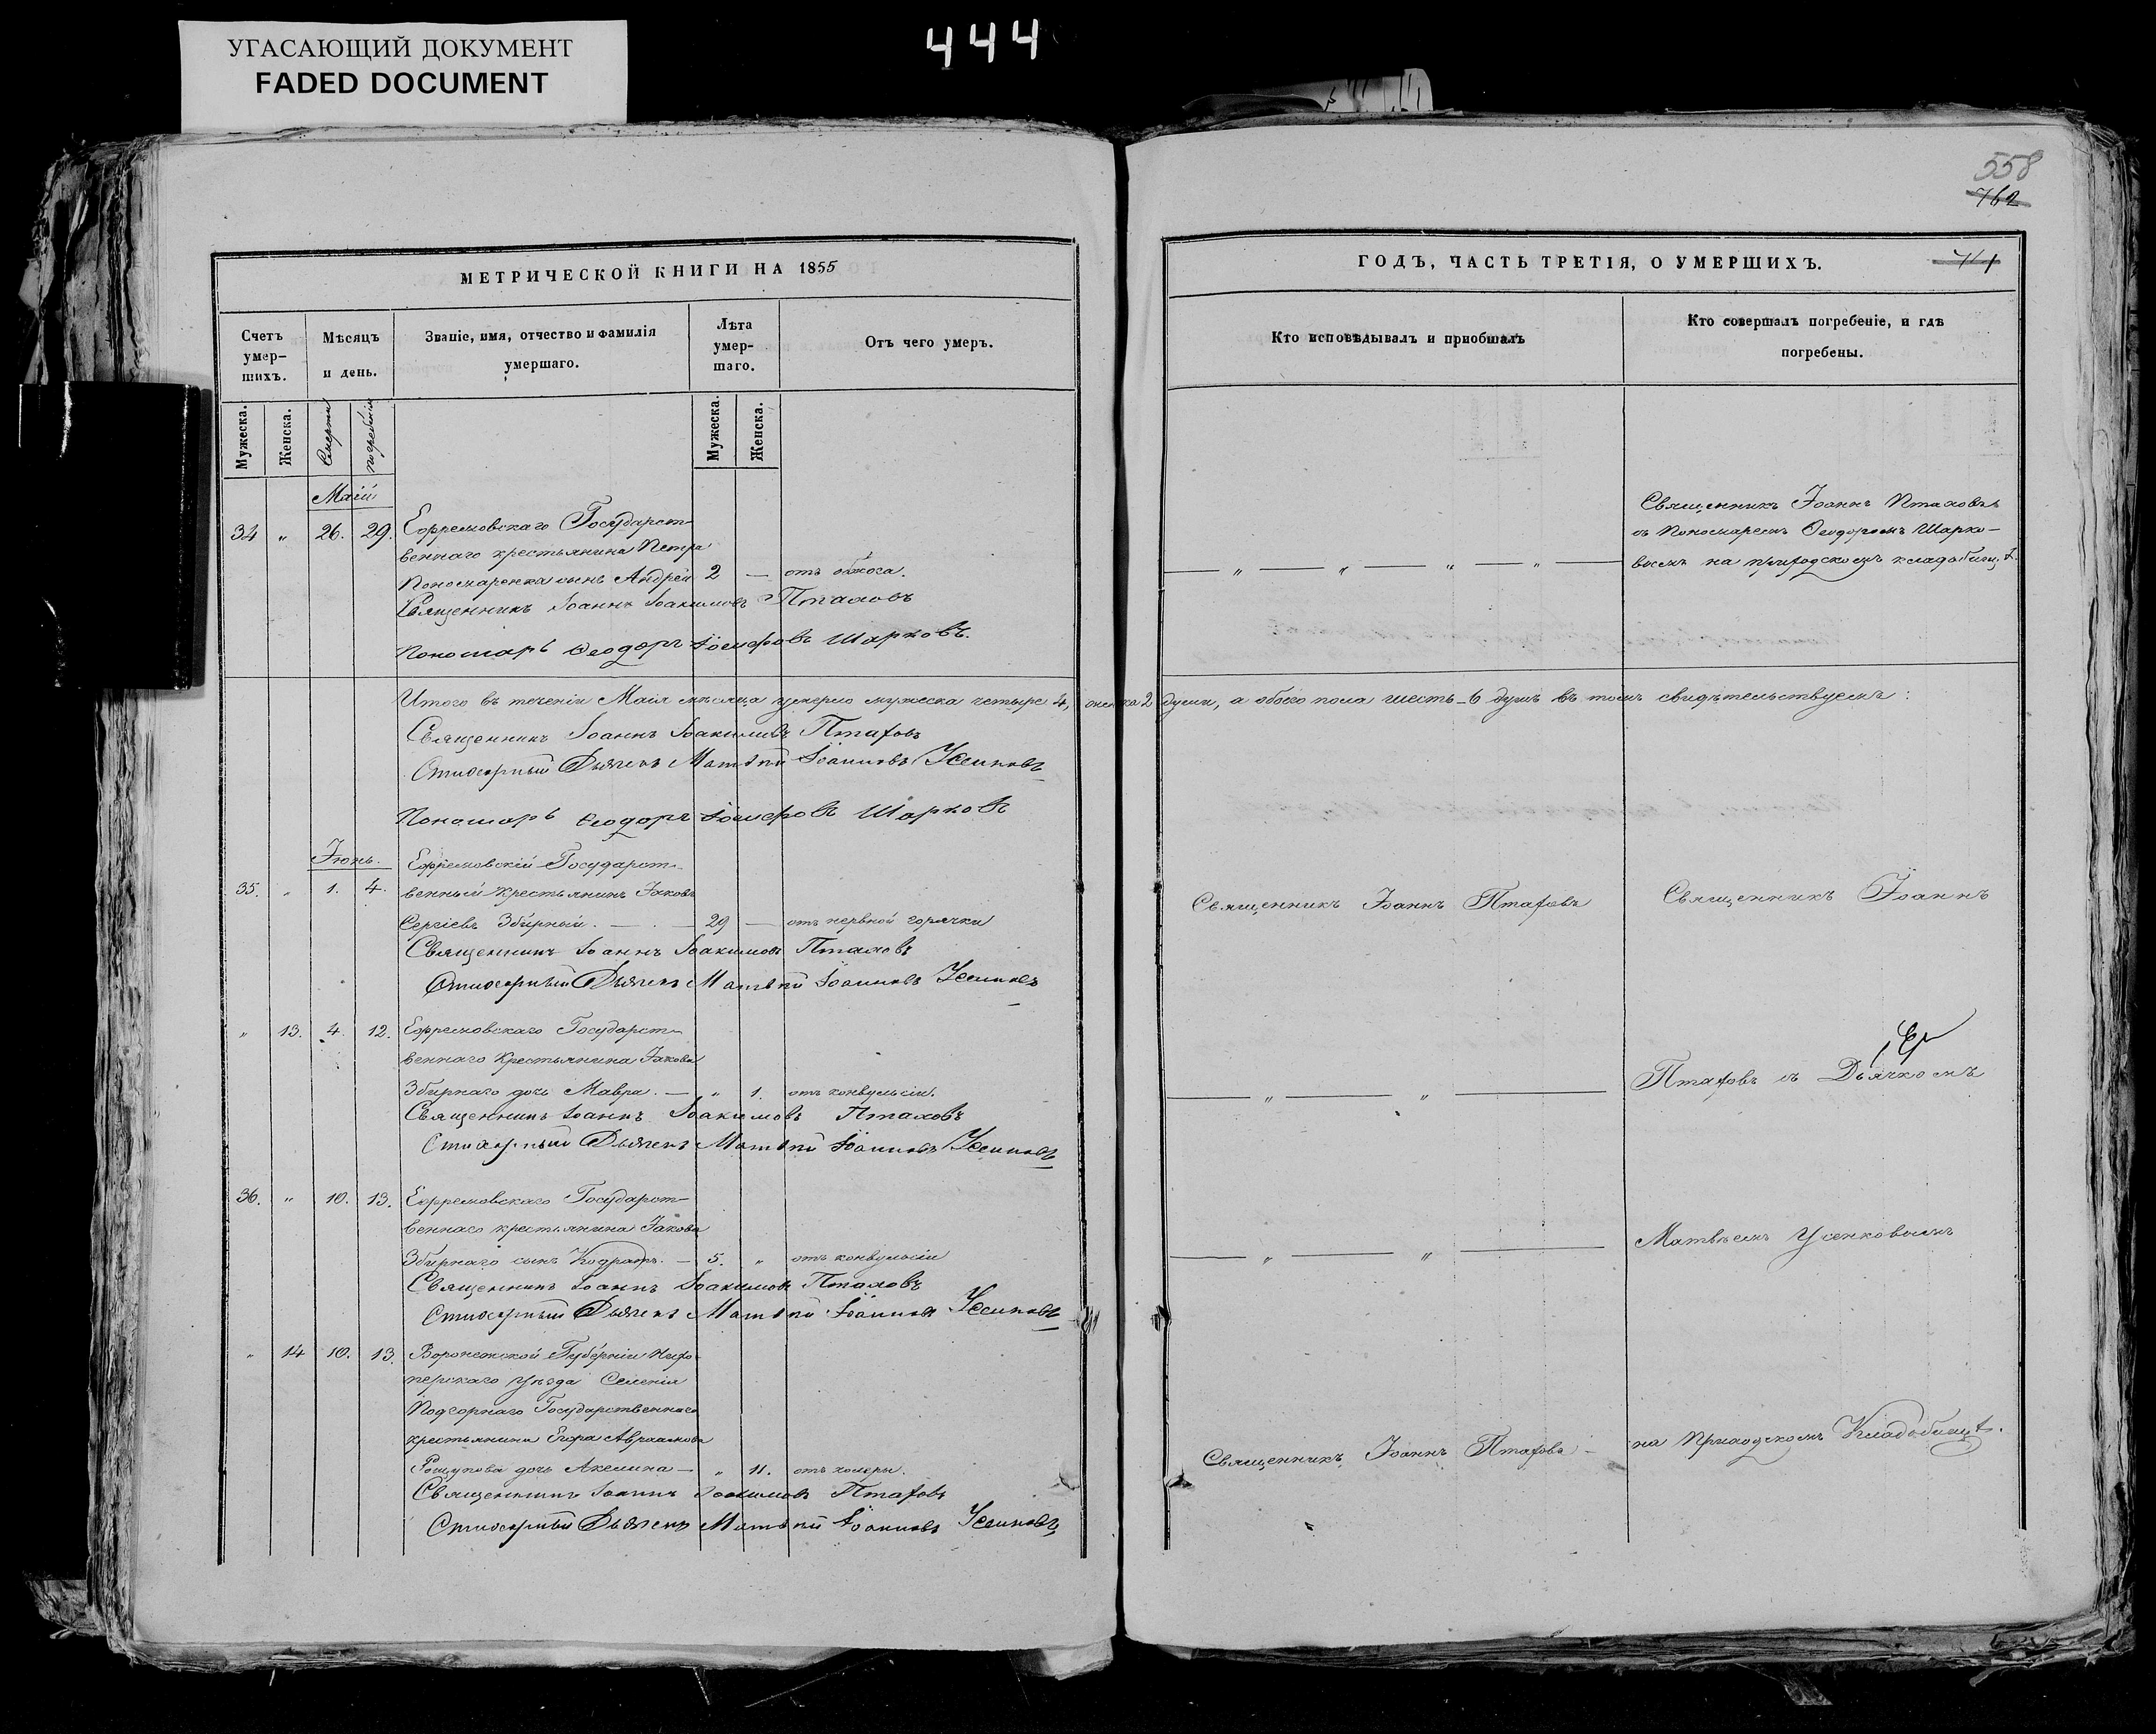 УГАСАЮЩИЙ ДОКУМЕНТ
FADED DOCUMENT
444
558
762
МЕТРИЧЕСКОЙ КНИГИ НА 1855
Счетъ умер-шихъ.
Мѣсяцъ и день.
Званіе, имя, отчество и фамилія умершаго.
Лѣта умер-шаго.
Отъ чего умеръ.
Мужеска.
Женска.
Смерти
погребенія
Мужеска.
Женска.
Маій
34 „ 26. 29. Ефремовскаго Государст-
веннаго крестьянина Петра
Пономаренка сынъ Андрей 2 — отъ обжога.
Священникъ Іоаннъ Іоакимовъ Птаховъ
Пономарь Ѳеодоръ Іосифовъ Шарковъ.
Итого въ теченіи Маія мѣсяца умерло мужеска четыре 4, женска 2 души, а обоего пола шесть – 6 душъ въ томъ свидѣтельствуемъ:
Священникъ Іоаннъ Іоакимовъ Птаховъ
Стихарный Дьячекъ Матвѣй Іоанновъ Усенковъ
Пономарь Ѳеодоръ Іосифовъ Шарковъ
Іюнь.
Ефремовскій Государст-
35. „ 1. 4. венный Крестьянинъ Іаковъ
Сергіевъ Збирный. — 29 — отъ нервной горячки
Священникъ Іоаннъ Іоакимовъ Птаховъ
Стихарный Дьячекъ Матвѣй Іоанновъ Усенковъ
„ 13. 4. 12. Ефремовскаго Государст-
веннаго Крестьянина Іакова
Збирнаго дочь Мавра. — „ 1. отъ конвульсіи.
Священникъ Іоаннъ Іоакимовъ Птаховъ
Стихарный Дьячекъ Матвѣй Іоанновъ Усенковъ
36. „ 10. 13. Ефремовскаго Государст-
веннаго крестьянина Іакова
Збирнаго сынъ Кодратъ. — 5. „ отъ конвульсіи
Священникъ Іоаннъ Іоакимовъ Птаховъ
Стихарный Дьячекъ Матвѣй Іоанновъ Усенковъ
„ 14 10. 13. Воронежской Губерніи Нехо-
перскаго Уѣзда Селенія
Подгорнаго Государственнаго
крестьянина Егора Авраамова
дочь Акелина — „ 11. отъ холеры.
Священникъ Іоаннъ Іоакимовъ Птаховъ
Стихарный Дьячекъ Матвѣй Іоанновъ Усенковъ
ГОДЪ, ЧАСТЬ ТРЕТІЯ, О УМЕРШИХЪ.
Кто исповѣдывалъ и пріобщалъ
Кто совершалъ погребеніе, и гдѣ
погребены.
Священникъ Іоаннъ Птаховъ
съ Пономаремъ Ѳеодоромъ Шарко-
— „ — „ — „ — „ — вымъ на приходскомъ кладбищѣ.
Священникъ Іоаннъ Птаховъ
Священникъ Іоаннъ
— „ — „ —
Птаховъ съ Дьячкомъ
— „ — „ —
Матвѣемъ Усенковымъ
Священникъ Іоаннъ Птаховъ —
на Приходскомъ Кладбищѣ.